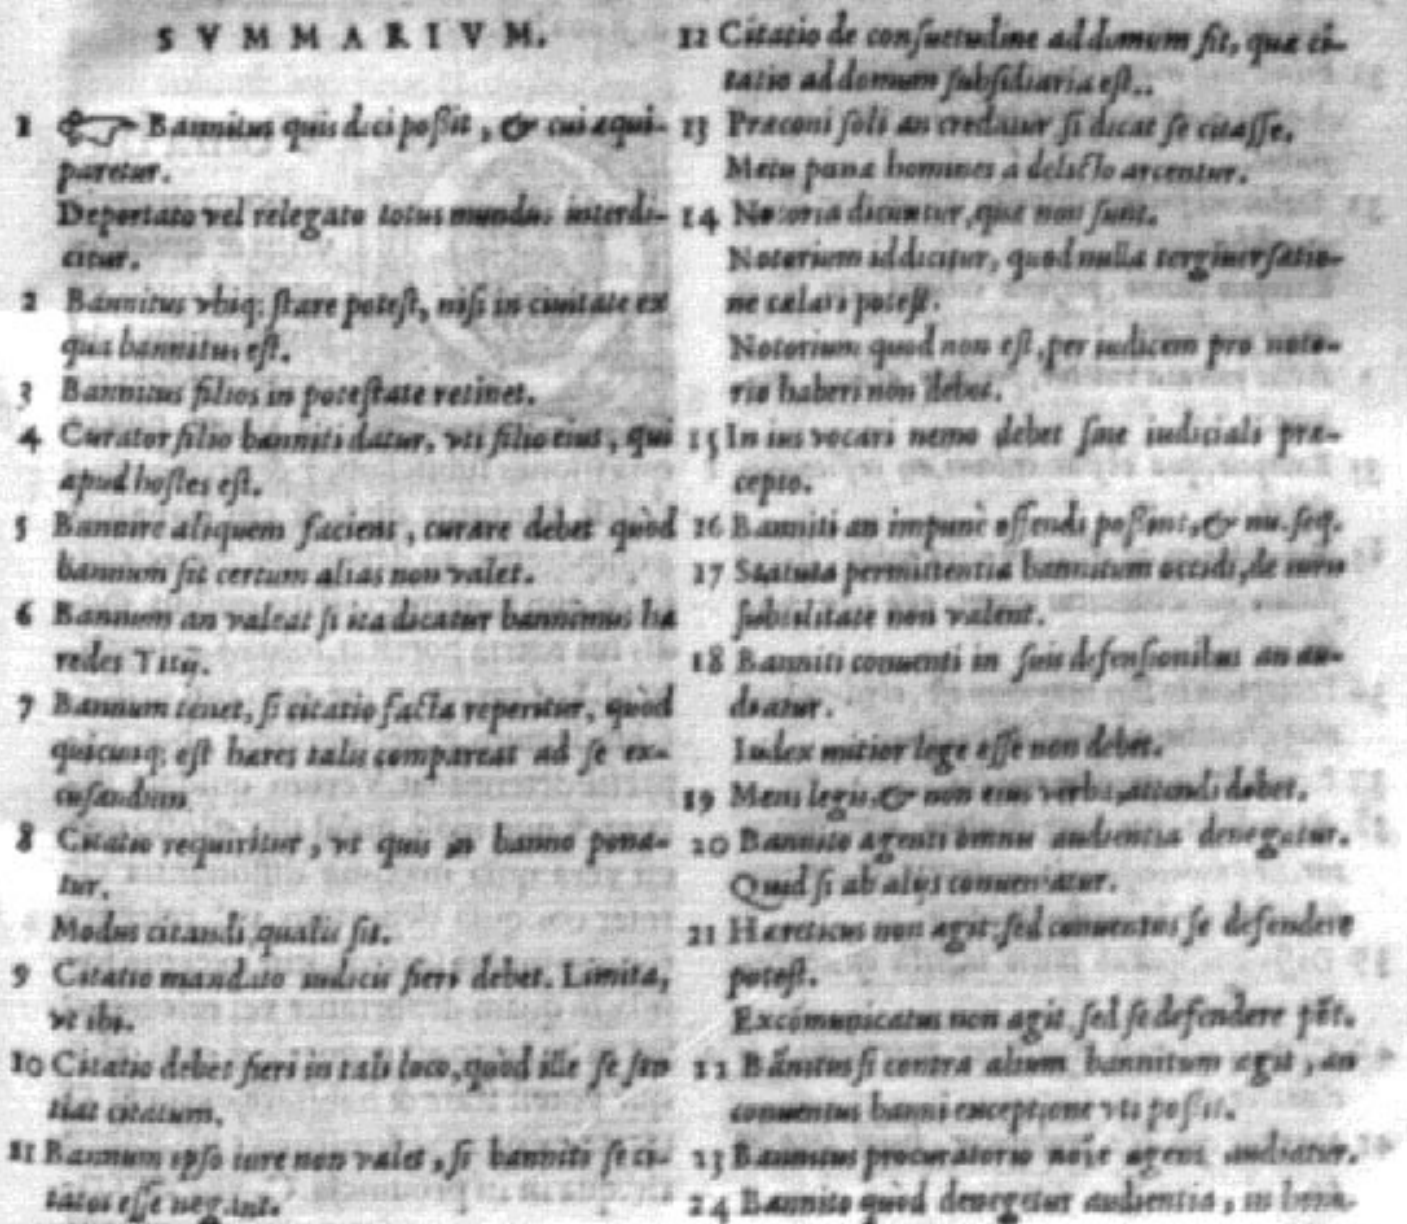 SVMMARIVM.
1 ☞ Bannitus quis dici poßit, & cui æqui-
paretur.
Deportato vel relegato totus mundus interdi-
citur.
2 Bannitus vbiq; ſtare poteſt, niſi in ciuitate ex
qua bannitus eſt.
3 Bannitus filios in poteſtate retinet.
4 Curator filio banniti datur, vti filio eius, qui
apud hoſtes eſt.
5 Bannire aliquem faciens, curare debet quòd
bannum ſit certum alias non valet.
6 Bannum an valeat ſi ita dicatur bannimus hæ
redes Titij.
7 Bannum tenet, ſi citatio facta reperitur, quòd
quicunq; eſt hæres talis compareat ad ſe ex-
cuſandum
8 Citatio requiritur, vt quis in banno pona-
tur.
Modus citandi qualis ſit.
9 Citatio mandato iudicis fieri debet. Limita,
vt ibi.
10 Citatio debet fieri in tali loco, quòd ille ſe ſen
tiat citatum.
11 Bannum ipſo iure non valet, ſi banniti ſe ci-
tatos eſſe negant.
12 Citatio de conſuetudine ad domum fit, quæ ci-
tatio ad domum ſubſidiaria eſt..
13 Præconi ſoli an credatur ſi dicat ſe citaſſe.
Metu pœnæ homines à delicto arcentur.
14 Notoria dicuntur, quæ non ſunt.
Notorium id dicitur, quod nulla tergiuerſatio-
ne cælari poteſt.
Notorium quod non eſt, per iudicem pro noto-
rio haberi non debet.
15 In ius vocari nemo debet ſine iudiciali præ-
cepto.
16 Banniti an impunè offendi poßint, & nu. ſeq.
17 Statuta permittentia bannitum occidi, de iuris
ſubtilitate non valent.
18 Banniti conuenti in ſuis defenſionibus an au-
diatur.
Iudex mitior lege eſſe non debet.
19 Mens legis, & non eius verba, attendi debet.
20 Bannito agenti omnis audientia denegatur.
Quid ſi ab alijs conueniatur.
21 Hæreticus non agit: ſed conuentus ſe defendere
poteſt.
Excõmunicatus non agit ſed ſe defendere põt.
22 Bãnitus ſi contra alium bannitum agit, an
conuentus banni exceptione vti poſſit.
23 Bannitus procuratorio noĩe agens audiatur.
24 Bannito quòd denegetur audientia, in